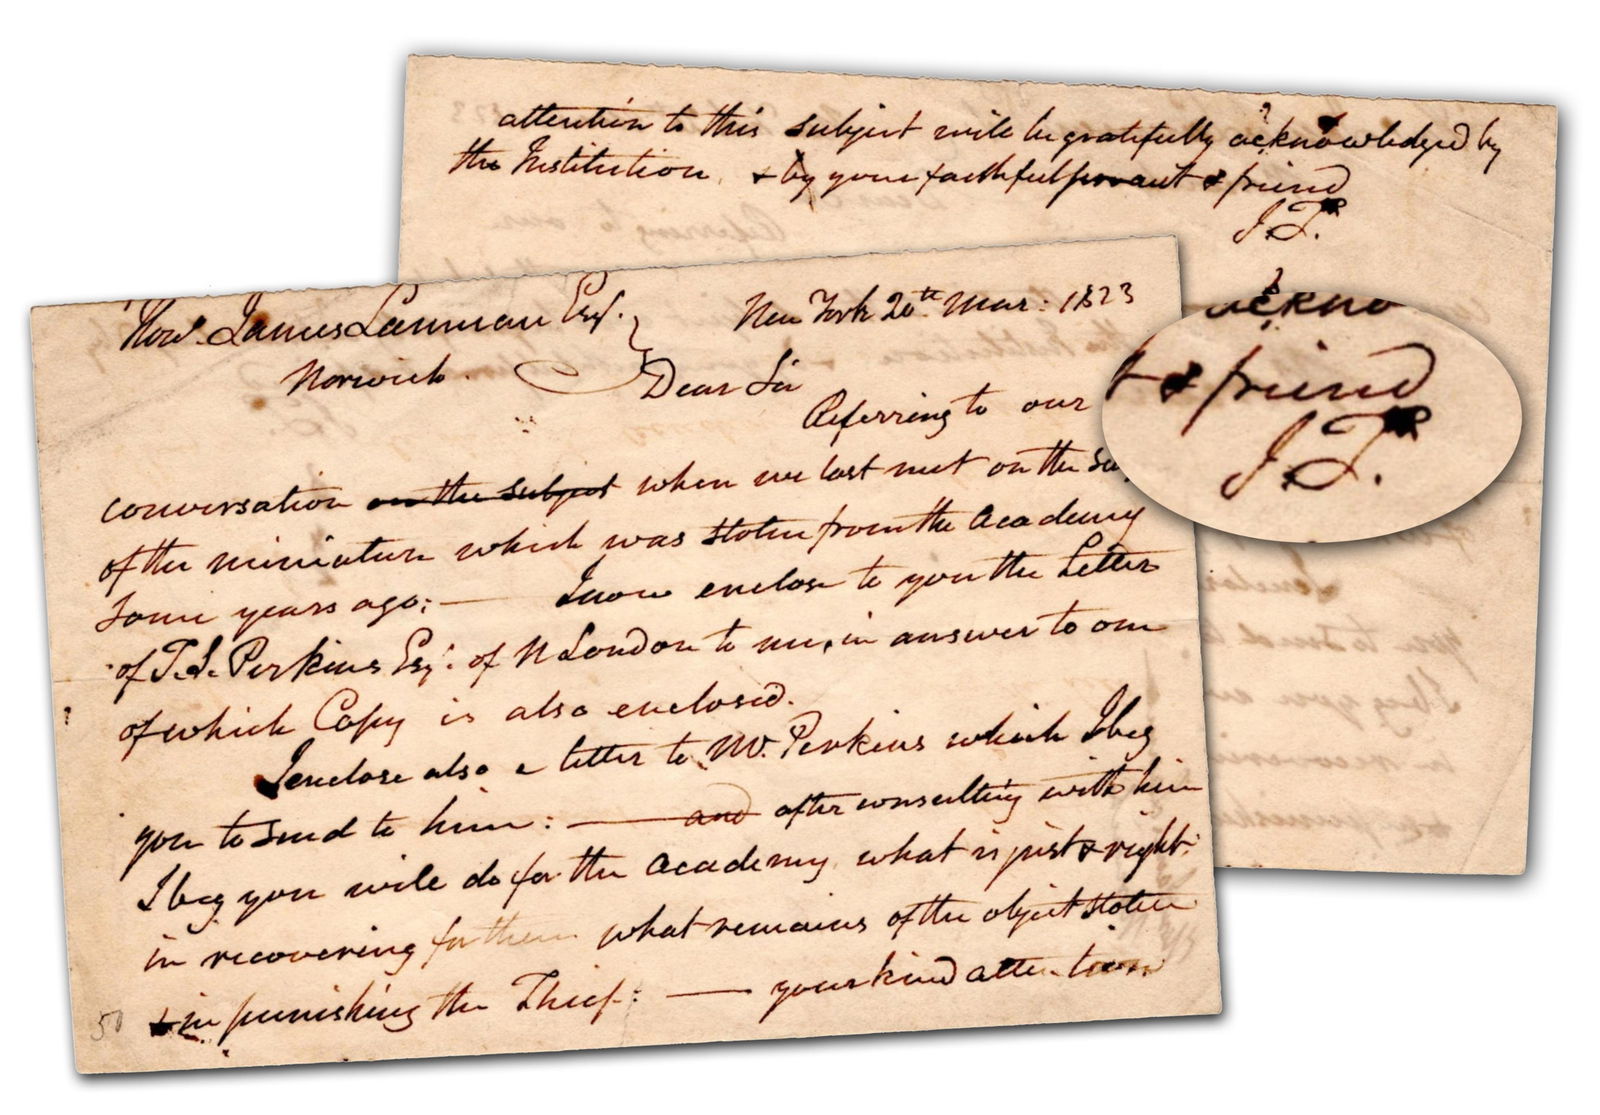 Hon. James Lanman Esq.
Norwich.
New York 20th Mar: 1823
Dear Sir
Referring to our
conversation on the subject when we last met on the
of the miniature which was stolen from the Academy
some years ago; — I now enclose to you the Letter
of T. S. Perkins Esq: of N London to me, in answer to one
of which Copy is also enclosed.
I enclose also a letter to Mr. Perkins which I beg
you to send to him: — and after consulting with him
I beg you will do for the Academy what is just & right
in recovering for them what remains of the object stolen
& in punishing the Thief: — your kind attention
50
attention to this subject will be gratefully acknowledged by
the Institution, & by your faithful servant & friend
J.T.
ackno
t & friend
J.T.